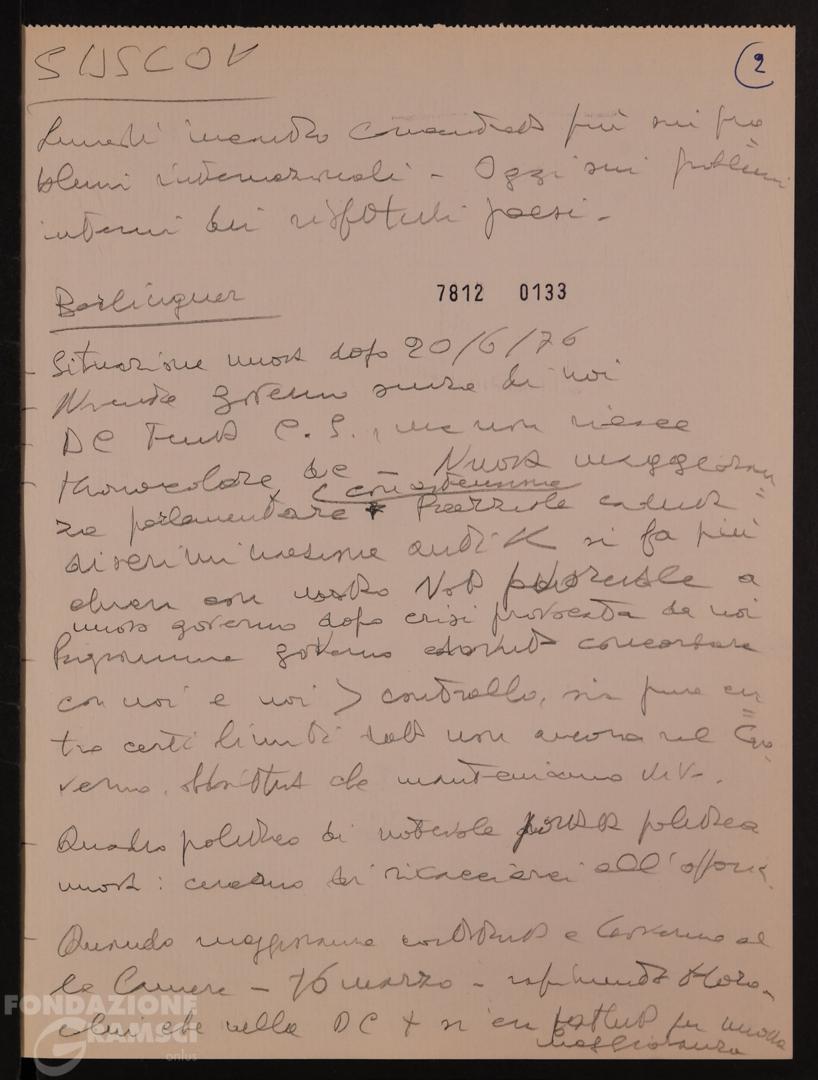 SUSLOV
2
Lunedì incentrato più sui pro
blemi internazionali - Oggi sui problemi
interni dei rispettivi paesi -
Berlinguer
7812 0133
- Situazione nuova dopo 20/6/76
- Nessun governo senza di noi
- DC tenta C. S., ma non riesce
Monocolore dc - Nuova maggioran=
za parlamentare (con astensione
Parziale caduta
discriminazione anti K si fa più
chiara con nostro voto favorevole a
nuovo governo dopo crisi provocata da noi
- Programma governo concordare
con noi e noi > controllo, sia pure en=
tro certi limiti dato non ancora nel Go
verno, obiettivo che manteniamo vivo.
- Quadro politico di notevole portata politica
nuova: cercano di ricacciarci all'oppos.
- Quando maggioranza costituita e Governo al
le Camere - 16 marzo - rapimento Moro -
colui che nella DC + si era battuto per nuova
maggioranza
FONDAZIONE
GRAMSCI
onlus